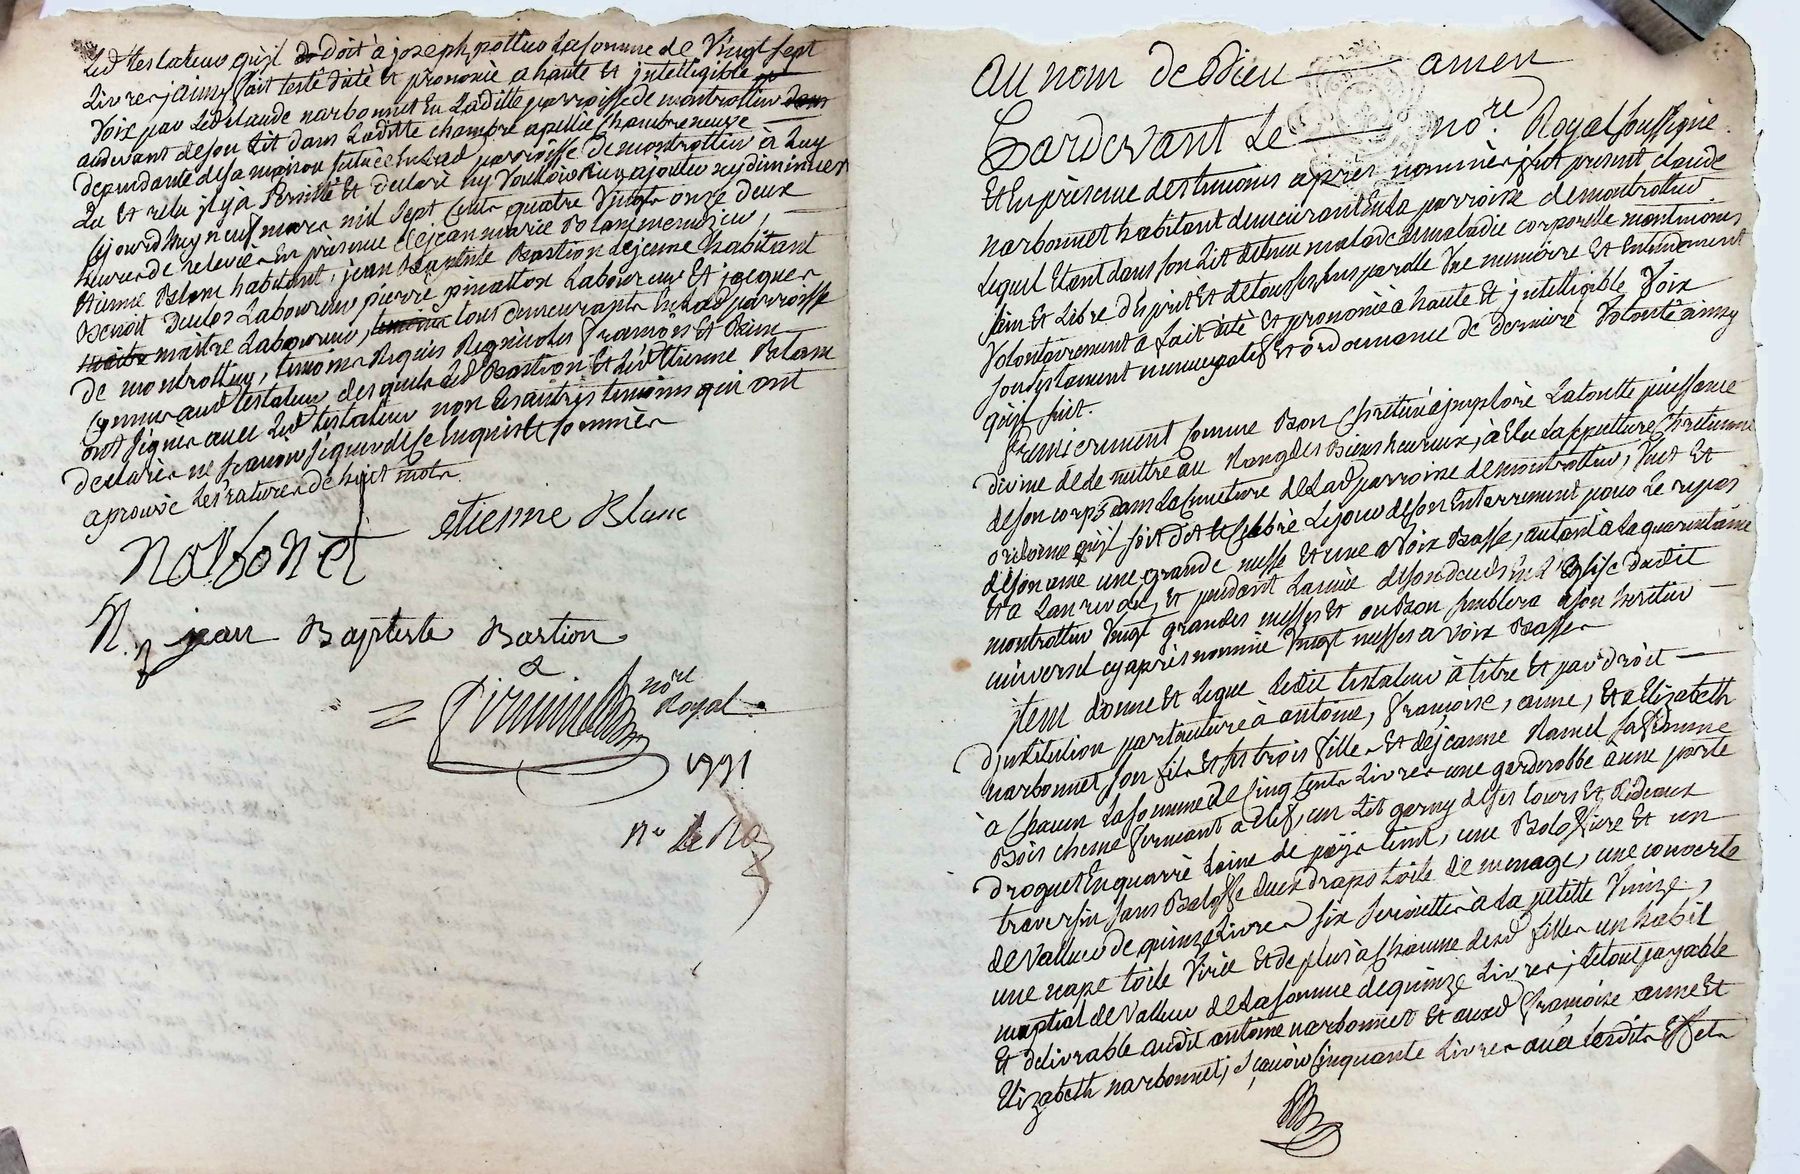 Led testateur qu'il doit à joseph pottier La somme de Vingt sept
Livres, ainsy fait testé dicté et prononcé a haute et intelligible
Voix par Led Claude narbonnet En Laditte parroisse de montrottier
audevant de son Lit dans Laditte chambre apellée Chambre neuve
dependante de sa maison située En Lad parroisse de montrottier à Luy
Lu et relu il y a persisté Et declaré ny Vouloir Rien ajouter ny diminuer
Cejourdhuy neuf mars mil sept Cents quatre Vingts onze deux
heures de relevée En presence de jean marie Blanc menuzier,
Etienne Blanc habitant, jean Baptiste Bastion lejeune habitant
Benoit Duclos Laboureur pierre pinatton Laboureur Et jacques
maitre Laboureur, tous demeurants En Lad parroisse
de montrottier, temoins Requis Regnicoles francois Et Bien
Connus aud testateur desquels Led Bastion Et Led Etienne Blanc
ont signés avec Led testateur non Les autres temoins qui ont
declarés ne sçavoir signer de ce Enquis Et sommés
aprouvé Les ratures de huit mots
Narbonet
etienne Blanc
jean Baptiste Bastion
nore
Royal
1791
au nom de Dieu amen
Pardevant Le nore Royal soussigné
Et En présence des temoins après nommés, fut present claude
narbonnet habitant demeurant En La parroisse de montrottier
Lequel Etant dans son Lit detenu malade de maladie corporelle neantmoins
sain Et Libre d'Esprit Et de tous ses sens parolle Vue memoire Et Entendement
Volontairement a fait dicté et prononcé a haute Et intelligible Voix
son testament nuncupatif Et ordonnance de derniere Volonté ainsy
qu'il suit.
Premierement Comme Bon Chretien a imploré La toutte puissance
divine de le mettre au Rang des Bienheureux, a Elu La sepulture Chretienne
de son corps dans Le Cimetiere de Lad parroisse de montrottier, Veut Et
ordonne qu'il soit dit et Celebré Le jour de son Enterrement pour Le repos
de son ame une grande messe Et une a Voix Basse, autant à La quarantaine
Et a Lan revolu, Et pendant Lannée de son deuil En L'Eglise dudit
montrottier Vingt grandes messes Et ou Bon semblera a son heritier
universel cy après nommé Vingt messes a voix Basses
Item donne Et Legue Ledit testateur à titre Et par droit
D'institution particuliere à antoine, Françoise, anne, Et a Elizabeth
narbonnet son fils Et ses trois filles Et de jeanne Ramel sa femme
à Chacun La somme de Cinq Cents Livres une garderobbe à une porte
Bois chene fermant a clef, un Lit garny de ses tours Et Rideaux
droguet En quarré Laine de pays teint, une Balossiere Et un
traversin sans Balosse deux draps toile de menage, une couverte
de Valleur de quinze Livres six serviettes à La petitte Venize,
une nape toile Virée Et de plus à Chacune desd filles un habit
nuptial de Valleur de La somme de quinze Livres, Le tout payable
Et delivrable audit antoine narbonnet Et auxd Françoise anne Et
Elizabeth narbonnet, sçavoir Cinquante Livres avec Lesdits Effets